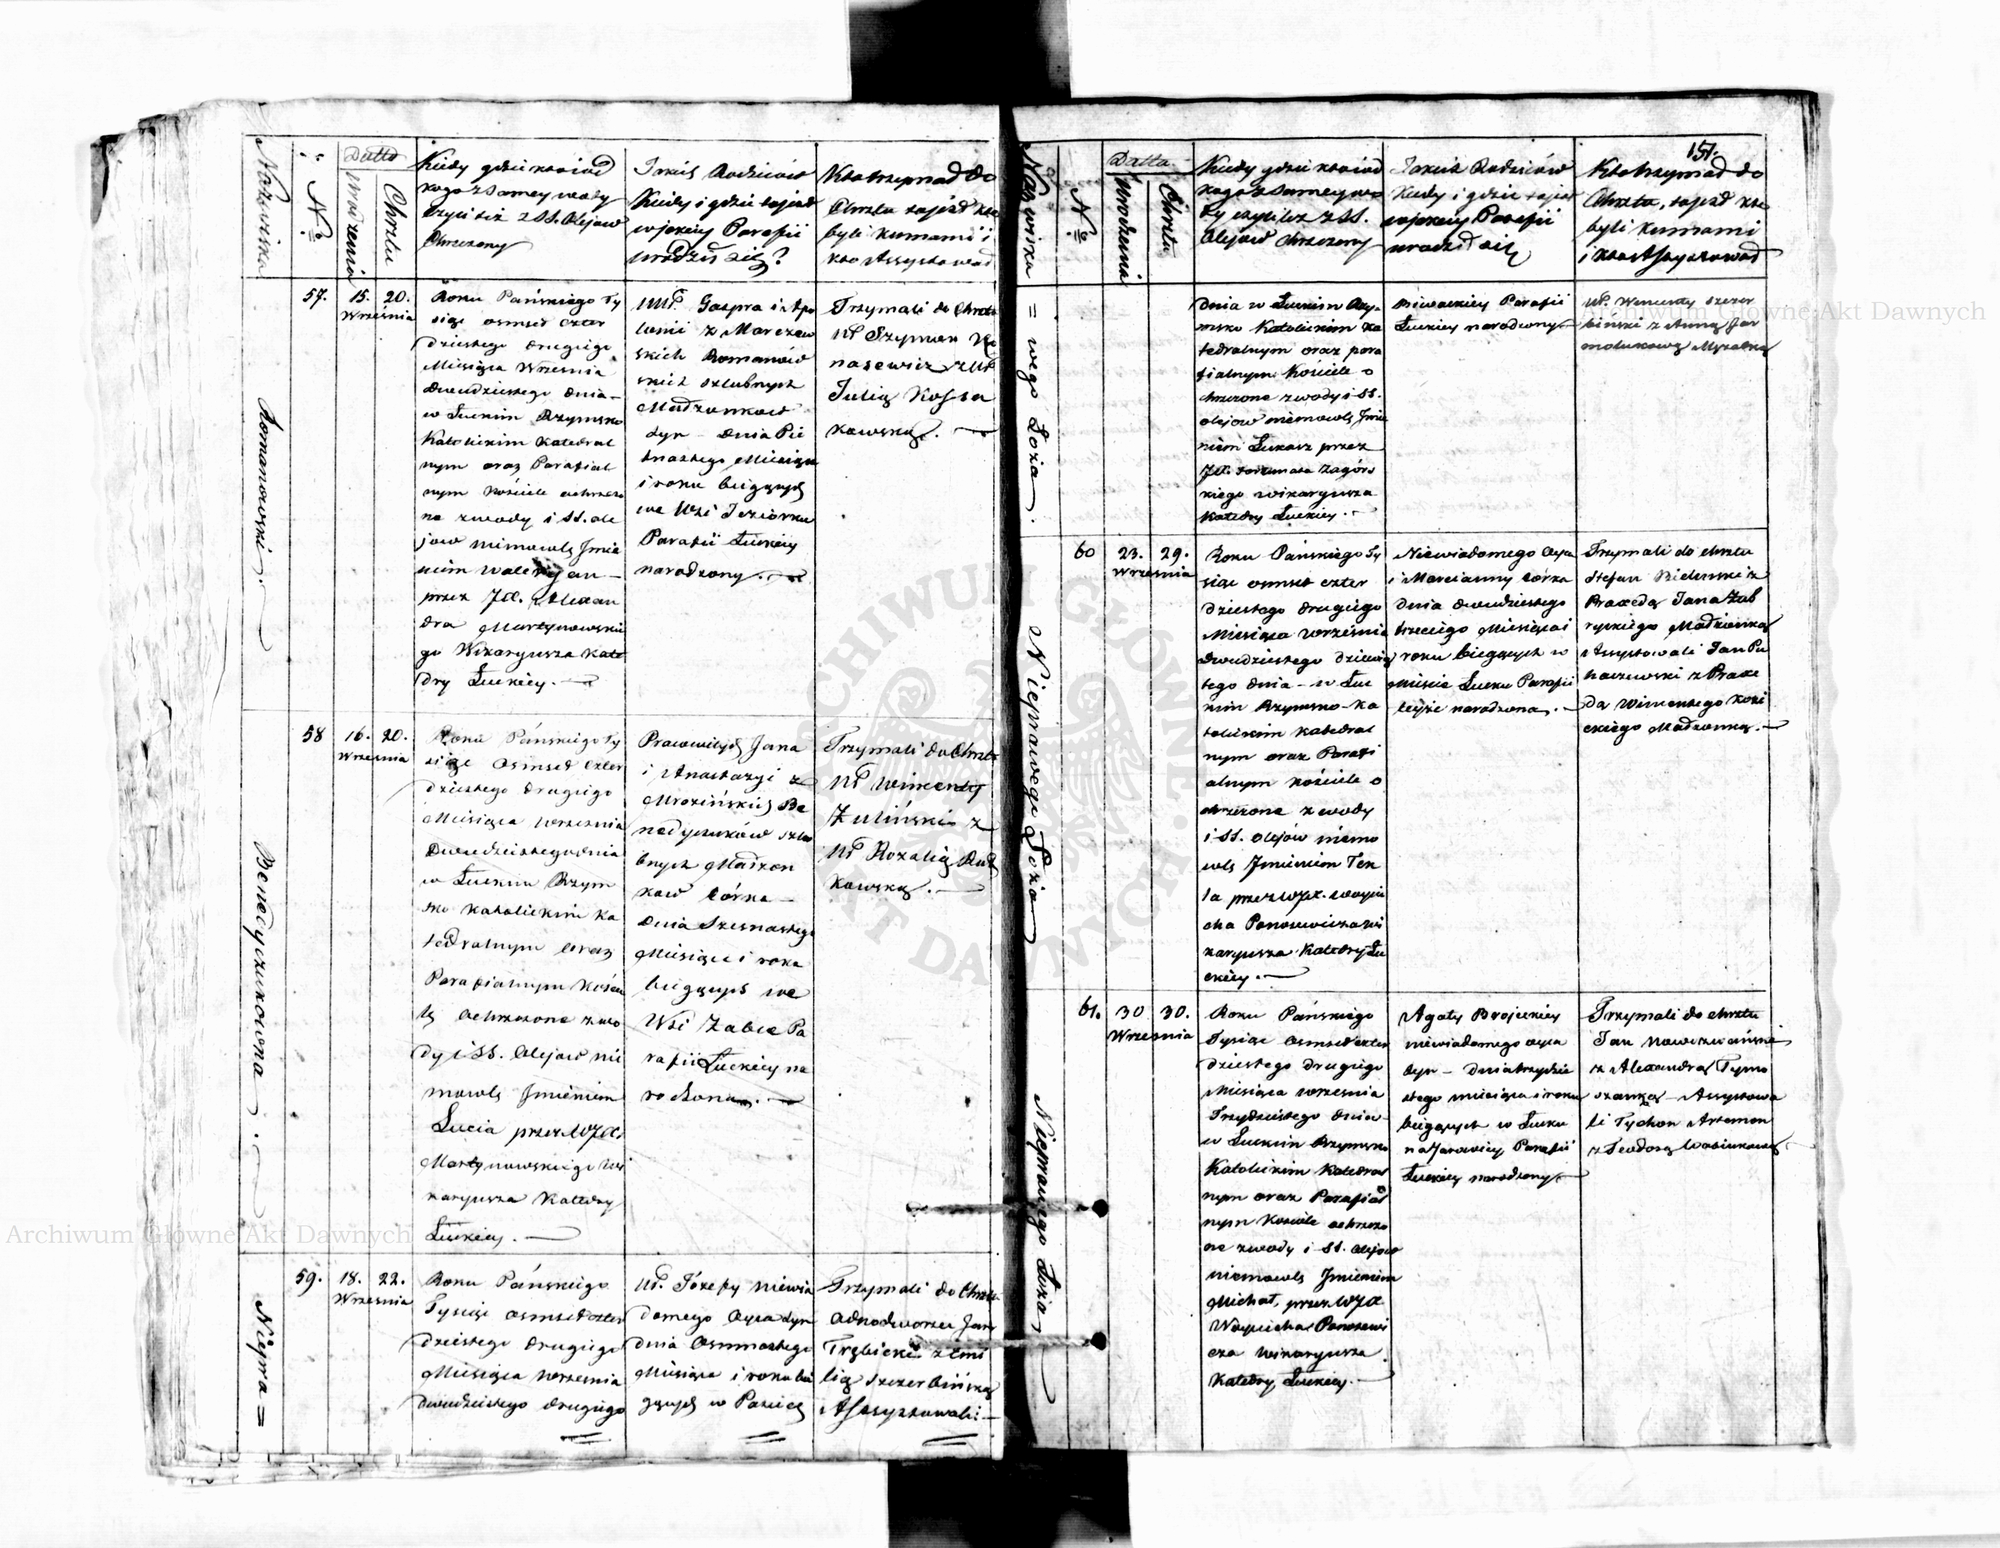 Nazwiska
N°
Datta
Urodzenia
Chrztu
Kiedy gdzie kto i od
kogo z samey wody
czyli też z SS. Olejow
Chrzczony
Jakich Rodziców
Kiedy i gdzie to jest
w jakiey Parafii
urodził się?
Kto trzymał do
Chrztu to jest kto
byli kumami i
kto Assystował
Romanowski.
57.
15. 20.
Września
Roku Pańskiego Ty
siąc osmset czter
dziestego drugiego
Miesiąca Września
dwudziestego dnia
w Łuckim Rzymsko
Katolickim Katedral
nym oraz Parafial
nym Kościele ochrzczo
no z wody i SS. Ole
jow niemowle Jmie
niem Waleryan
przez JX. Alexan
dra Martynowskie
go Wikaryusza Kate
dry Łuckiey.
UU. Gaspra i Apo
lonii z
skich Romanow
skich szlubnych
Małżonkow
syn dnia Pie
tnastego Miesiąca
i roku bieżących
we Wsi Jeziorku
Parafii Łuckiey
narodzony.
Trzymali do Chrztu
Szymon
z
Julią Kossa
kowską.
Benedyczukowna.
58
16. 20.
Września
Roku Pańskiego Ty
siąc Osmset czter
dziestego drugiego
Miesiąca Września
Dwudziestego dnia
w Łuckim Rzym
sko Katolickim Ka
tedralnym oraz
Parafialnym Koście
le ochrzczono z wo
dy i SS. Olejow nie
mowle Jmieniem
Łucia przez WJX.
Martynowskiego Wi
karyusza Katedry
Łuckiey.
Prawowitych Jana
i Anastazyi z
Mrozińskich Be
nedyczuków szlu
bnych Małżon
kow córka
dnia Szesnastego
Miesiąca i roku
bieżących we
Wsi Zabce Pa
rafii Łuckiey na
rodzona.
Trzymali do Chrztu
Wincenty
Zuliński z
Rozalią Rud
kowską.
Niepra=
59.
18. 22.
Września
Roku Pańskiego
Tysiąc osmset czter
dziestego drugiego
Miesiąca Września
dwudziestego drugiego
Józefy niewia
domego Oyca syn
dnia Osmnastego
Miesiąca i roku bie
żących w
Trzymali do Chrztu
Jan
Trębicki z Emi
lią Szczerbińską
Assystowali
151.
Nazwiska
N°
Datta
Urodzenia
Chrztu
Kiedy gdzie kto i od
kogo z samey wo
dy czyli też z SS.
Olejów chrzczony
Jakich Rodziców
Kiedy i gdzie to jest
w jakiey Parafii
urodził się
Kto trzymał do
Chrztu, to jest kto
byli kumami
i kto Assystował
=wego Łoża.
dnia w Łuckim Rzy
msko Katolickim Ka
tedralnym oraz para
fialnym Kościele o
chrzczono z wody i SS.
olejow niemowle Jmie
niem Łukasz przez
JX. Fortunata Zagórs
kiego Wikaryusza
Katedry Łuckiey.
Parafii
Łuckiey narodzony
Wincenty Szczer
biński z Anną Jar
Archiwum Główne Akt Dawnych
Nieprawego Łoża
60
23. 29.
Września
Roku Pańskiego Ty
siąc osmset czter
dziestego drugiego
Miesiąca września
dwudziestego dziewią
tego dnia w Łuc
kim Rzymsko-Ka
tolickim Katedral
nym oraz Parafi
alnym Kościele o
chrzczono z wody
i SS. Olejów niemo
wle Jmieniem Tek
la przez WJX. Woycie
cha Wi
karyusza Katedry Łu
ckiey.
Niewiadomego Oyca
i Marcianny córka
dnia dwudziestego
trzeciego Miesiąca i
roku bieżących w
Mieście Łucku Parafii
teyże narodzona.
Trzymali do chrztu
Stefan z
Praxedą Jana
Małżonką
Assystowali Jan
z Praxe
dą Wincentego
Małżonką.
Nieprawego Łoża
61.
30 30.
Września
Roku Pańskiego
Tysiąc osmset czter
dziestego drugiego
Miesiąca września
Trzydziestego dnia
w Łuckim Rzymsko
Katolickim Katedral
nym oraz Parafial
nym Kościele ochrzczo
no z wody i SS. Olejow
niemowle Jmieniem
Michał, przez WJX
Woyciecha
Wikaryusza
Katedry Łuckiey.
Agaty
niewiadomego oyca
syn dnia trzydzie
stego miesiąca i roku
bieżących w Łucku
Parafii
Łuckiey narodzony
Trzymali do chrztu
Jan
z Alexandrą Tymo
Assystowa
li Tychon Artemon
z Teodorą
Archiwum Główne Akt Dawnych
ARCHIWUM GŁÓWNE AKT DAWNYCH